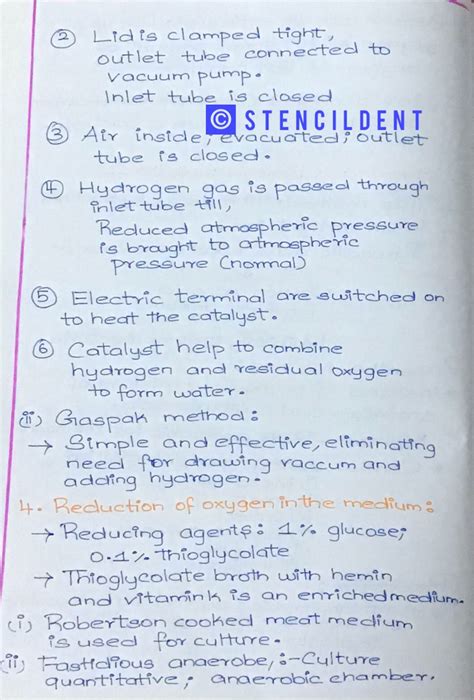 ② Lid is clamped tight,
outlet tube connected to
vacuum pump.
Inlet tube is closed
© STENCILDENT
③ Air inside, evacuated; outlet
tube is closed.
④ Hydrogen gas is passed through
inlet tube till,
Reduced atmospheric pressure
is braught to atmospheric
pressure (normal)
⑤ Electric terminal are switched on
to heat the catalyst.
⑥ Catalyst help to combine
hydrogen and residual oxygen
to form water.
(ii) Gaspak method:
→ Simple and effective, eliminating
need for drawing vaccum and
adding hydrogen.
4. Reduction of oxygen in the medium:
→ Reducing agents: 1% glucose;
0.1% thioglycolate
→ Thioglycolate broth with hemin
and vitamin k is an enriched medium.
(i) Robertson cooked meat medium
is used for culture.
(ii) Fastidious anaerobe, :- Culture
quantitative; anaerobic chamber.